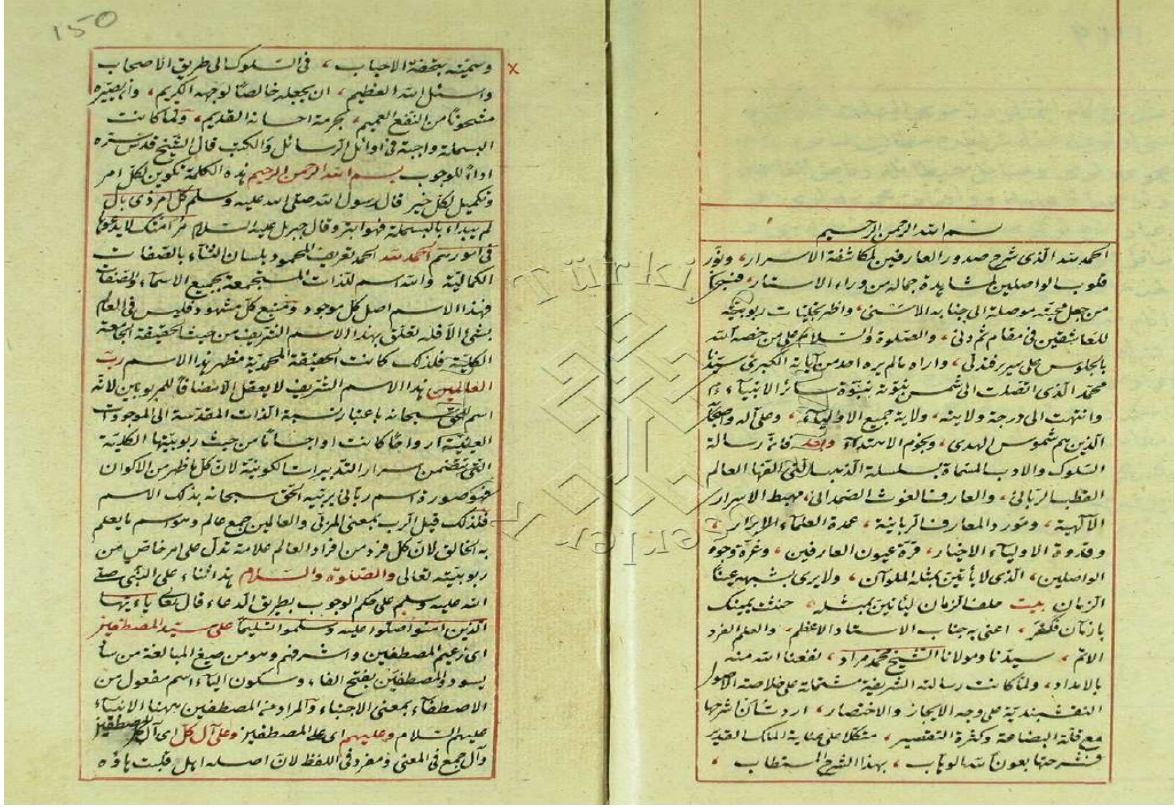 بسم الله الرحمن الرحيم
الحمد لله الذى شرح صدور العارفين لمكاشفة الاسرار، ونوّر
قلوب الواصلين لمشاهدة جماله من وراء الاستار، فسبحان
من جعل محبته موصلة الى جنابه الاسنى، واظهر تجليات ربوبيته
للعاشقين فى مقام ثم دنى، والصلوة والسلام على من خصه الله
بالجلوس على سرير فتدلى، واراه مالم يره احد من آياته الكبرى سيدنا
محمد الذى اتصلت الى شمس نبوته نبوة سائر الانبياء
وانتهت الى درجة ولايته، ولاية جميع الاولياء، وعلى آله واصحابه
الذين هم شموس الهدى، ونجوم الاهتداء وبعد فان رسالة
السلوك والادب المسماة بسلسلة الذهب التى الفها العالم
القطب الربانى، والعارف الغوث الصمدانى، مهبط الاسرار
الآلهية، ومورد المعارف الربانية، عمدة العلماء الابرار،
وقدوة الاولياء الاخيار، قرة عيون العارفين، وغرة وجوه
الواصلين، الذى لا يأتين بمثله الملوان، ولا يرى شبهه عينا
الزمان بيت حلف الزمان ليأتين بمثله، حنثت يمينك
يا زمان فكفر، اعنى به جناب الاستاد الاعظم، والعلم الفرد
الاتم، سيدنا ومولانا الشيخ محمد مراد، نفعنا الله منه
بالامداد، ولما كانت رسالته الشريفة مشتملة على خلاصة الاصول
النقشبندية على وجه الايجاز والاختصار، اردت ان اشرحها
مع قلة البضاعة وكثرة التقصير، متكلا على عناية الملك القدير
فشرحتها بعون الله الوهاب، بهذا الشرح المستطاب،
150
وسميته بتحفة الاحباب، فى السلوك الى طريق الاصحاب
واسئل الله العظيم، ان يجعله خالصا لوجهه الكريم، وان يصيره
مشحونا من النفع العميم، بحرمة احسانه القديم، ولما كانت
البسملة واجبة فى اوائل الرسائل والكتب قال الشيخ قدس سره
اداء للوجوب بسم الله الرحمن الرحيم هذه الكلمة تكوين لكل امر
وتكميل لكل خير قال رسول الله صلى الله عليه وسلم كل امر ذى بال
لم يبداء بالبسملة فهو ابتر وقال جبريل عليه السلام مر امتك لا يدعوها
فى امورهم الحمد لله الحمد تعريف المحمود بلسان الثناء بالصفات
الكمالية والله اسم للذات المستجمعة بجميع الاسماء والصفات
فهذا الاسم اصل كل موجود ومنبع كل مشهود فليس فى العالم
شئ الا فله تعلق بهذا الاسم الشريف من حيث الحقيقة الجامعة
الكلية فلذلك كانت الحقيقة المحمدية مظهر هذا الاسم رب
العالمين هذا الاسم الشريف لا يعقل الا مضافا للمربوبين لانه
اسم للحق سبحانه باعتبار نسبة الذات المقدسة الى الموجودات
العينية ارواحا كانت او اجسادا من حيث ربوبيتها الكلية
التى تتضمن اسرار التدبيرات الكونية لان كل ما ظهر من الاكوان
فهو صورة اسم ربانى يربيه الحق سبحانه بذلك الاسم
فلذلك قيل الرب بمعنى المربى والعالمين جمع عالم وهو اسم ما يعلم
به الخالق لان كل فرد من افراد العالم علامة تدل على امر خاص من
ربوبيته تعالى والصلوة والسلام هذا ثناء على النبى صلى
الله عليه وسلم على حكم الوجوب بطريق الدعاء قال تعالى يا ايها
الذين امنوا صلوا عليه وسلموا تسليما على سيد المصطفين
اى زعيم المصطفين واشرفهم وهو من صيغ المبالغة من ساد
يسود والمصطفين بفتح الفاء وسكون الياء اسم مفعول من
الاصطفاء بمعنى الاجتباء والمراد من المصطفين ههنا الانبياء
عليهم السلام وعليهم اى على المصطفين وعلى آل كل اى آل كل المصطفين
وآل جمع فى المعنى ومفرد فى اللفظ لان اصله اهل قلبت هاؤه
Türkiye